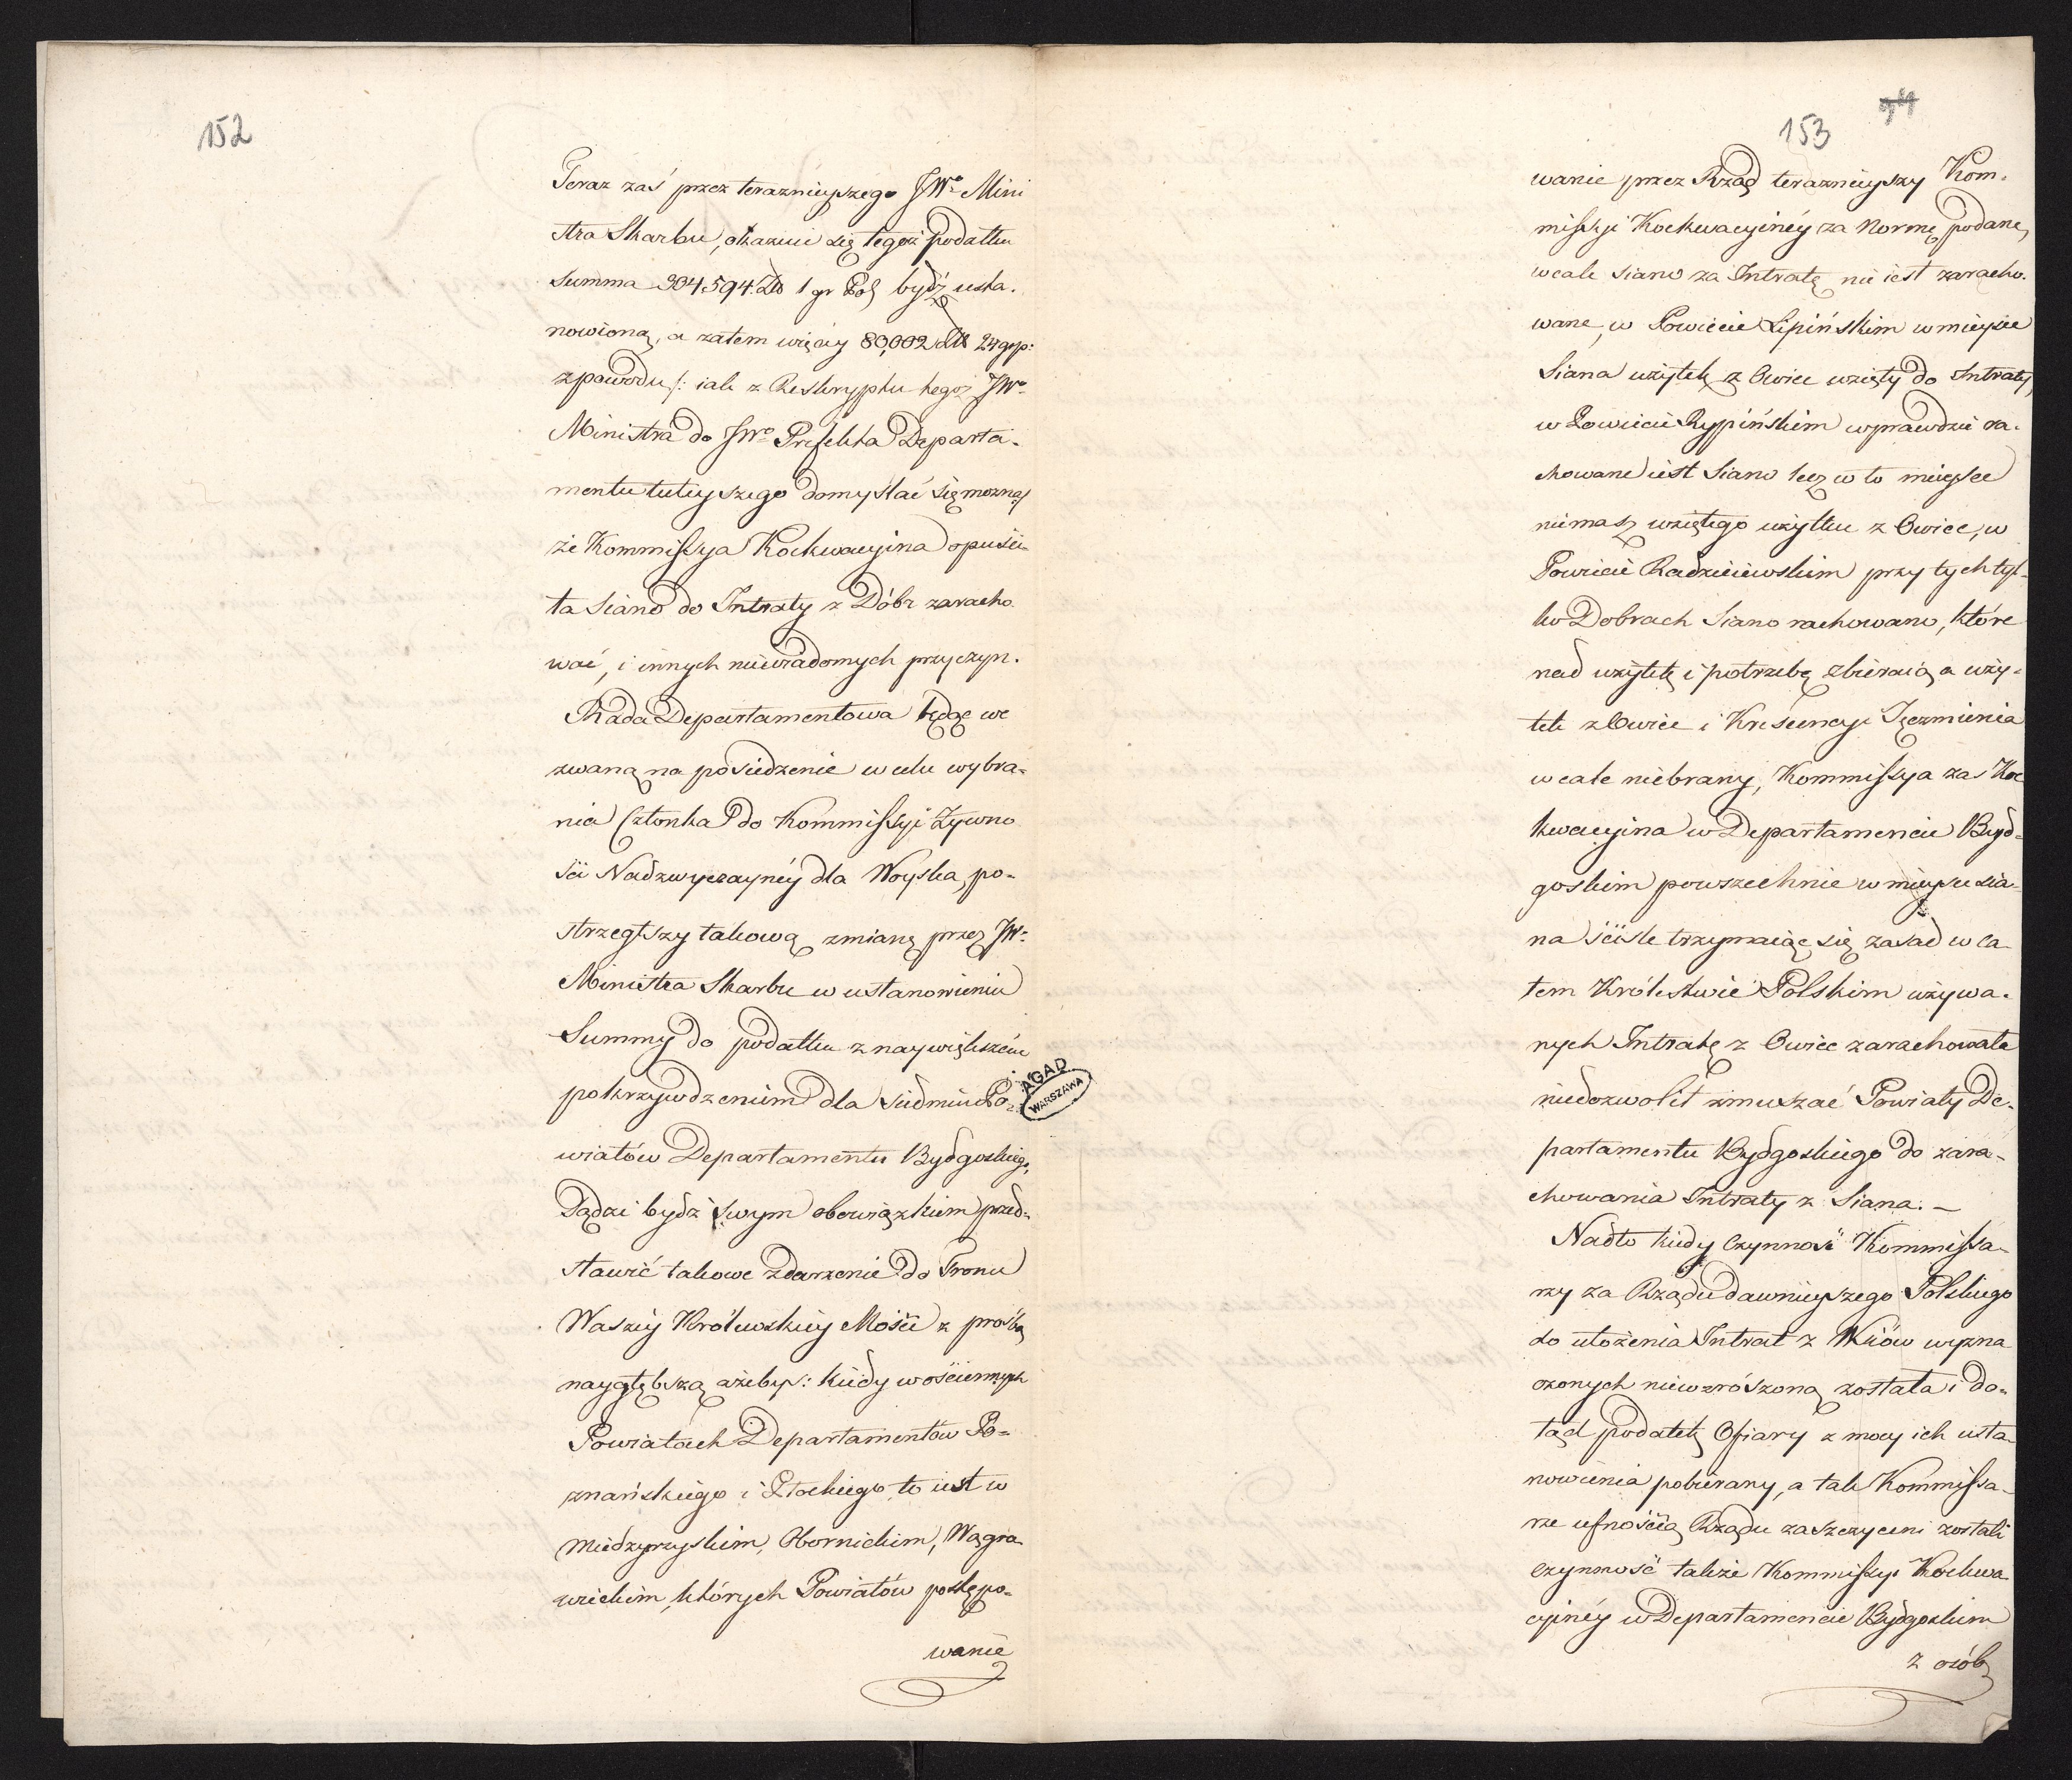 152
Teraz zaś przez teraznieyszego JWo Mini
stra Skarbu, okazuie się tegoż podatku
Summa 304,594. Zło 1 gr Pol bydź usta-
nowioną, a zatem więcey 80,002 Zło 24 grp:
z powodu /: iak z Reskryptu tegoż JWo
Ministra do JWo Prefekta Departa-
mentu tuteyszego domyslać się można/
że Kommissya Koekwacyina opuści-
ła Siano do Intraty z Dóbr zaracho
wać, i innych niewiadomych przyczyn.
Rada Departamentowa będąc we
zwaną na posiedzenie w celu wybra-
nia Członka do Kommissyi Żywno
ści Nadzwyczayney dla Woyska, po-
strzegłszy takową zmianę przez JWo
Ministra Skarbu w ustanowieniu
Summy do podatku z naywiększém
pokrzywdzeniem dla siedmiu Po-
wiatów Departamentu Bydgoskiego,
Sądzi bydź swym obowiązkiem przed-
stawić takowe zdarzenie do Tronu
Waszey Królewskiey Mości z prośbą
naygłębszą ażeby: kiedy w ościennych
Powiatach Departamentów Po-
znańskiego i Płockiego to iest w
Miedzyrzyskim, Obornickim, Wągro
wieckim, których Powiatów postępo-
wanie
AGAD
WARSZAWA
153
wanie przez Rząd teraznieyszy Kom-
missyi Koekwacyiney za Normę podane,
wcale siano za Intratę nie iest zaracho-
wane, w Powiecie Lipińskim w mieysce
Siana użytek z Owiec wzięty do Intraty,
w Powiecie Rypińskim wprawdzie ra-
chowane iest Siano lecz w to mieysce
niemasz wziętego użytku z Owiec, w
Powiecie Radzieiewskim przy tych tyl-
ko Dobrach Siano rachowano, które
nad użytek i potrzebę zbieraią a uży-
tek z Owiec i Krescencyi Jęczmienia
wcale niebrany, Kommissya zaś Koe
kwacyina w Departamencie Byd-
goskim powszechnie w mieyscu sia-
na ściśle trzymaiąc się zasad w ca-
łem Królestwie Polskim używa-
nych Intratę z Owiec zarachowała
niedozwolił zmuszać Powiaty De-
partamentu Bydgoskiego do zara-
chowania Intraty z Siana. –
Nadto kiedy Czynność Kommissa-
rzy za Rządu dawnieyszego Polskiego
do ułożenia Intrat z Wsiów wyzna
czonych niewzrószoną została i do-
tąd podatek Ofiary z mocy ich usta-
nowienia pobierany, a tak Kommissa-
rze ufnością Rządu zaszczyceni zostali
czynność także Kommissyi Koekwa
cyiney w Departamencie Bydgoskim
z osób